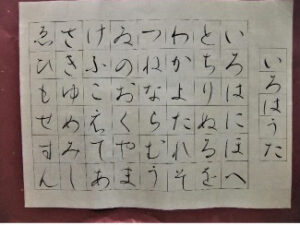 いろはうた
いろはにほへ
とちりぬるを
わかよたれそ
つねならむう
ゐのおくやま
けふこえてあ
さきゆめみし
ゑひもせすん